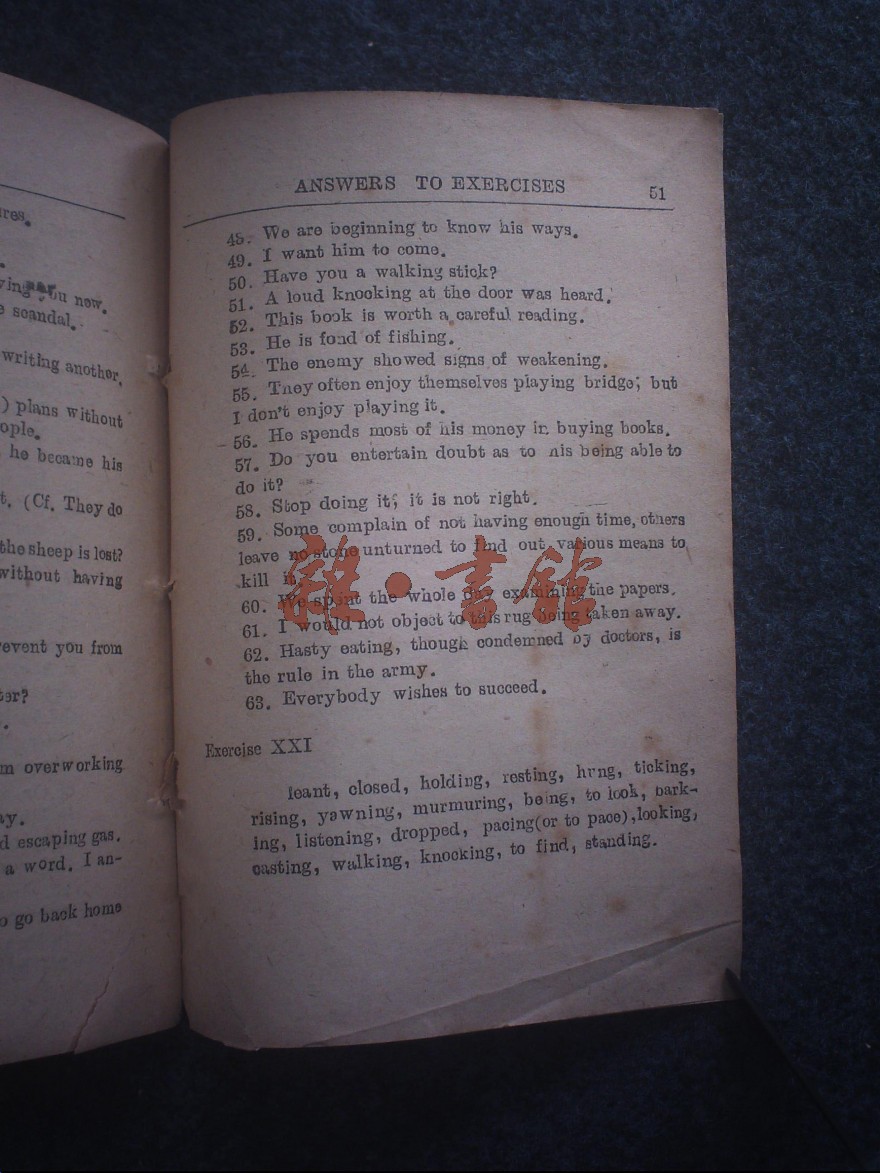 ures.
ving you now.
scandal.
writing another,
) plans without
ople.
he became his
t. (Cf. They do
the sheep is lost?
without having
revent you from
ter?
m overworking
ay.
d escaping gas.
a word. I an-
o go back home
ANSWERS TO EXERCISES 51
48. We are beginning to know his ways.
49. I want him to come.
50. Have you a walking stick?
51. A loud knocking at the door was heard.
52. This book is worth a careful reading.
53. He is fond of fishing.
54. The enemy showed signs of weakening.
55. They often enjoy themselves playing bridge; but
I don't enjoy playing it.
56. He spends most of his money in buying books.
57. Do you entertain doubt as to his being able to
do it?
58. Stop doing it; it is not right.
59. Some complain of not having enough time, others
leave no stone unturned to find out various means to
kill it.
60. We spent the whole day examining the papers.
61. I would not object to this rug being taken away.
62. Hasty eating, though condemned by doctors, is
the rule in the army.
63. Everybody wishes to succeed.
Exercise XXI
leant, closed, holding, resting, hung, ticking,
rising, yawning, murmuring, being, to look, bark-
ing, listening, dropped, pacing(or to pace), looking,
casting, walking, knocking, to find, standing.
雜·書館